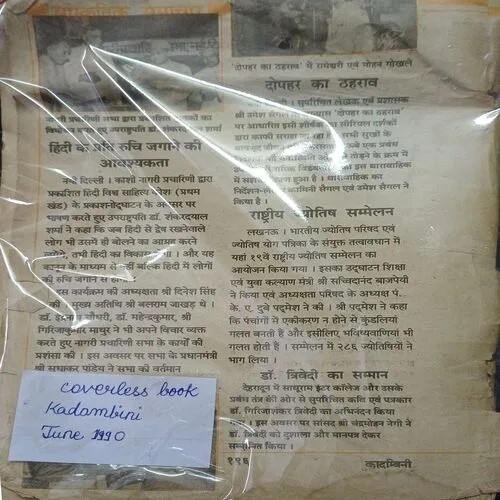 सांस्कृतिक समाचार
नागरी प्रचारिणी सभा द्वारा प्रकाशित का
विमोचन करते हुए उपराष्ट्रपति डॉ. शंकरदयाल शर्मा
हिंदी के प्रति रुचि जगाने की
आवश्यकता
नयी दिल्ली । काशी नागरी प्रचारिणी द्वारा
प्रकाशित हिंदी विश्व साहित्य कोश (प्रथम
खंड) के प्रकाशनोद्घाटन के अवसर पर
भाषण करते हुए उपराष्ट्रपति डॉ. शंकरदयाल
शर्मा ने कहा कि जब हिंदी से द्वेष रखनेवाले
लोग भी उसमें ही बोलने का आग्रह करने
लगेंगे, तभी हिंदी का विकास होगा । और यह
कानून के माध्यम से नहीं बल्कि हिंदी में लोगों
की रुचि जगाने से होगा
इस कार्यक्रम की अध्यक्षता श्री दिनेश सिंह
की । मुख्य अतिथि श्री बलराम जाखड़ थे ।
डॉ. चौधरी, डॉ. महेन्द्रकुमार, श्री
गिरिजाकुमार माथुर ने भी अपने विचार व्यक्त
करते हुए नागरी प्रचारिणी सभा के कार्यों की
प्रशंसा की । इस अवसर पर सभा के प्रधानमंत्री
श्री सुधाकर पांडेय ने सभा की वर्तमान
coverless book
Kadambini
June 1990
'दोपहर का ठहराव' में रामेश्वरी एवं मोहन गोखले
दोपहर का ठहराव
। सुपरिचित लेखक एवं प्रशासक
श्री उमेश सैगल के उपन्यास 'दोपहर का ठहराव'
पर आधारित इसी शीर्षक का सीरियल दर्शकों
द्वारा काफी सराहा जा रहा है । सभी सुखों के
एक प्रबंध
तोड़ने के क्रम में
इस धारावाहिक में
है । धारावाहिक का
निर्देशन कादम्बिनी सैगल एवं उमेश सैगल ने
किया है ।
राष्ट्रीय ज्योतिष सम्मेलन
लखनऊ । भारतीय ज्योतिष परिषद एवं
ज्योतिष योग पत्रिका के संयुक्त तत्वावधान में
यहां १९वें राष्ट्रीय ज्योतिष सम्मेलन का
आयोजन किया गया । इसका उद्घाटन शिक्षा
एवं युवा कल्याण मंत्री श्री सच्चिदानंद बाजपेयी
ने किया एवं अध्यक्षता परिषद के अध्यक्ष पं.
के. ए. दुबे पद्मेश ने की । श्री पद्मेश ने कहा
कि पंचांगों में एकीकरण न होने से कुंडलियां
गलत बनती हैं और इसीलिए भविष्यवाणियां भी
गलत होती हैं । सम्मेलन में २८६ ज्योतिषियों ने
भाग लिया ।
डॉ. त्रिवेदी का सम्मान
देहरादून में साधूराम इंटर कॉलेज और उसके
प्रबंध तंत्र की ओर से सुपरिचित कवि एवं पत्रकार
डॉ. गिरिजाशंकर त्रिवेदी का अभिनंदन किया
गया । इस अवसर पर सांसद श्री चंद्रमोहन नेगी ने
डॉ. त्रिवेदी को दुशाला और मानपत्र देकर
सम्मानित किया ।
१९६
कादम्बिनी